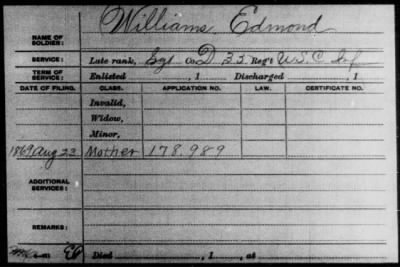 Williams, Edmond
NAME OF SOLDIER:
SERVICE: Late rank, Sgt Co. D 33 Reg't U.S.C. Inf
TERM OF SERVICE: Enlisted , 1 Discharged , 1
DATE OF FILING. CLASS. APPLICATION NO. LAW. CERTIFICATE NO.
Invalid,
Widow,
Minor,
1869 Aug 23 Mother 178.989
ADDITIONAL SERVICES:
REMARKS:
Died , 1 , at